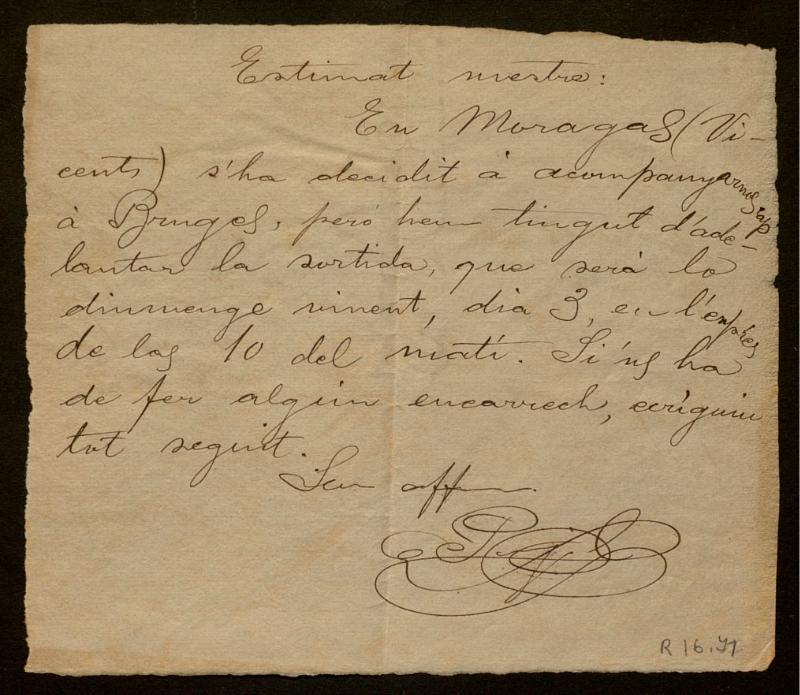 Estimat mestre:
En Moragas (Vi-
cents) s'ha decidit á acompanyarnos
á Bruges, peró hem tingut d'ade-
lantar la sortida, que será lo
diumenge vinent, dia 3, en l'exprés
de las 10 del matí. Si'ns ha
de fer algun encarrech, escríguin
tot seguit.
Seu affm.
R 16.71